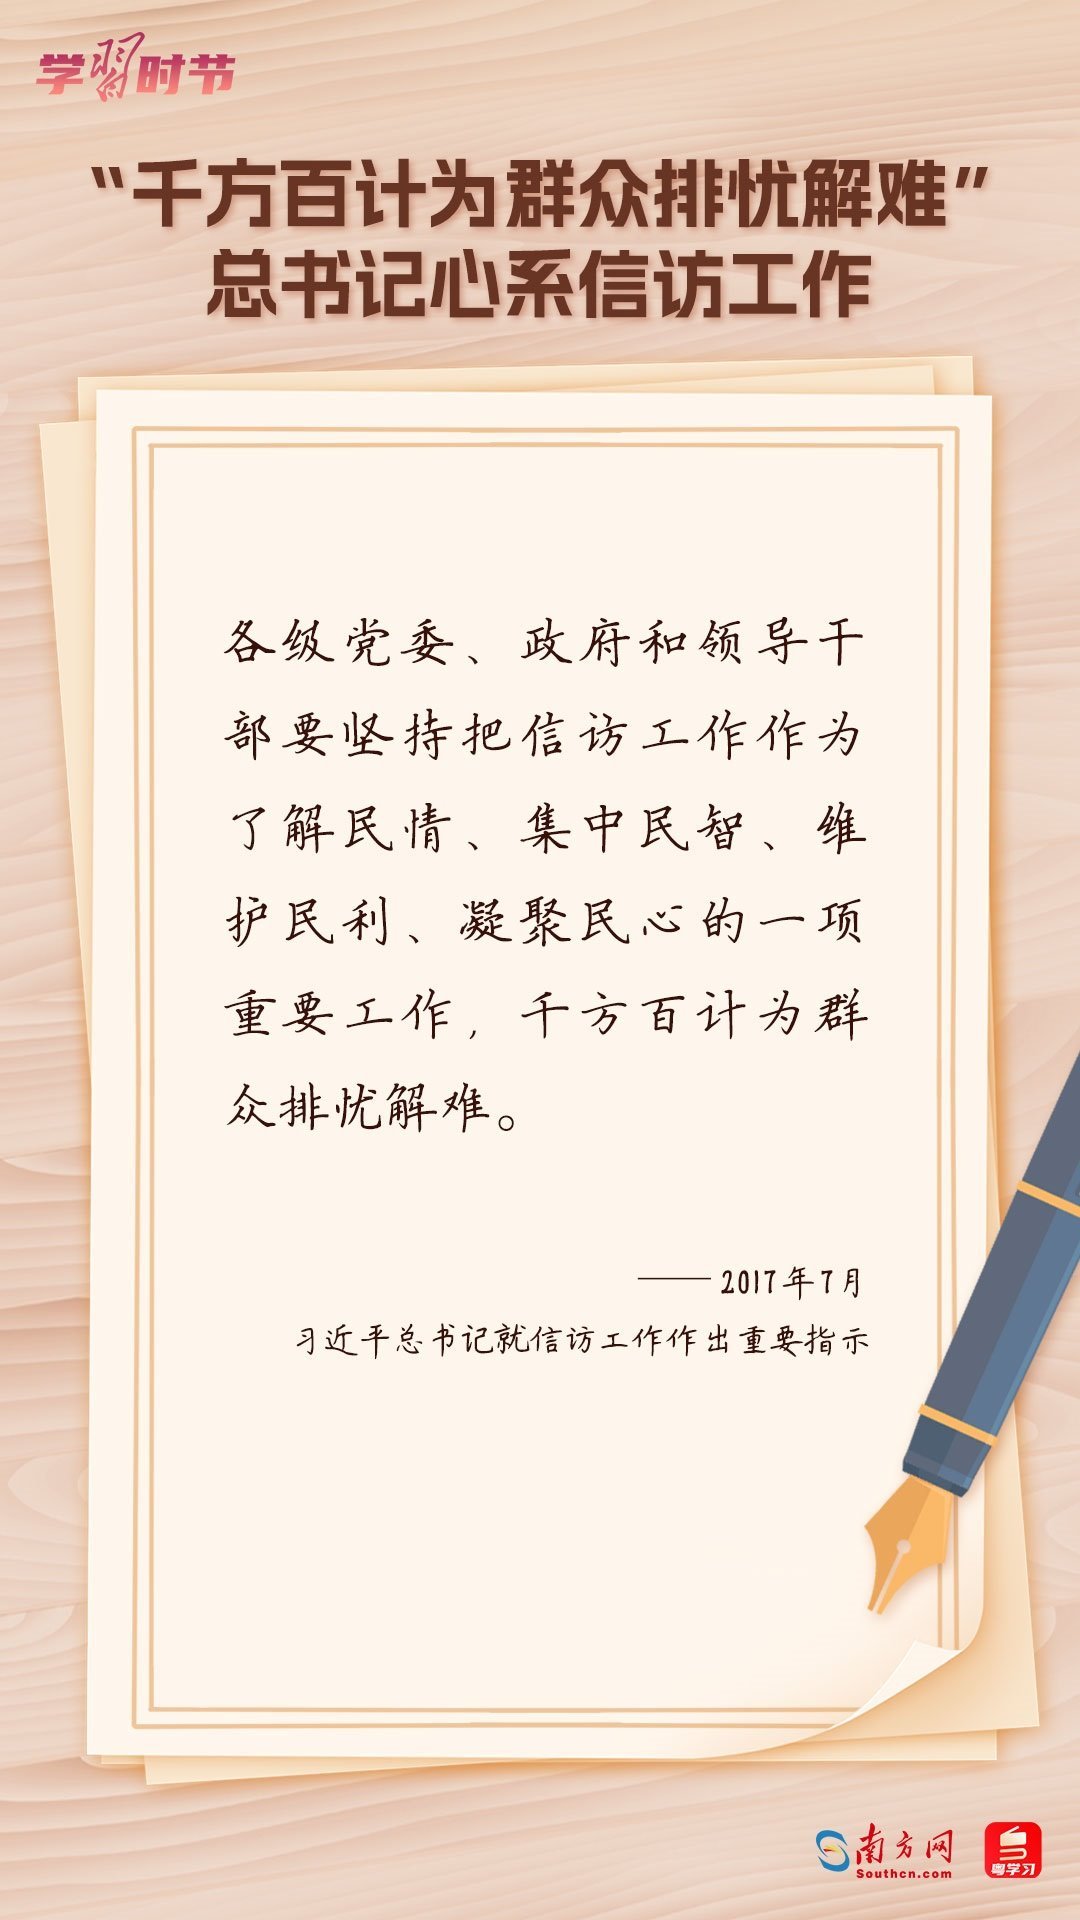 学习时节
“千方百计为群众排忧解难”
总书记心系信访工作
各级党委、政府和领导干
部要坚持把信访工作作为
了解民情、集中民智、维
护民利、凝聚民心的一项
重要工作,千方百计为群
众排忧解难。
——2017年7月
习近平总书记就信访工作作出重要指示
南方网
Southcn.com
粤学习